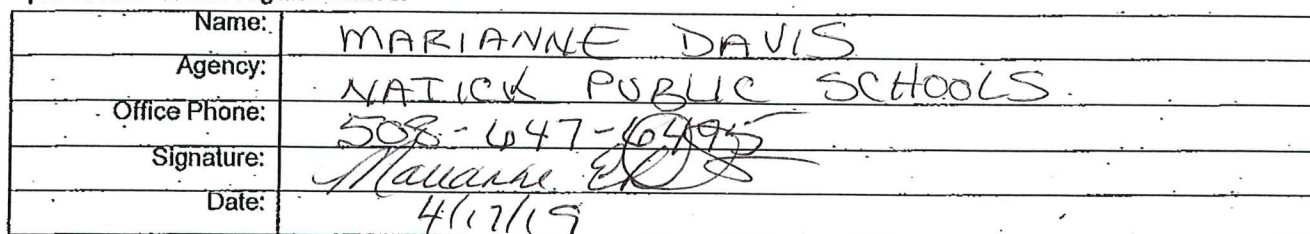 Name: MARIANNE DAVIS
Agency: NATICK PUBLIC SCHOOLS
Office Phone: 508-647-6495
Signature: Marianne
Date: 4/17/19